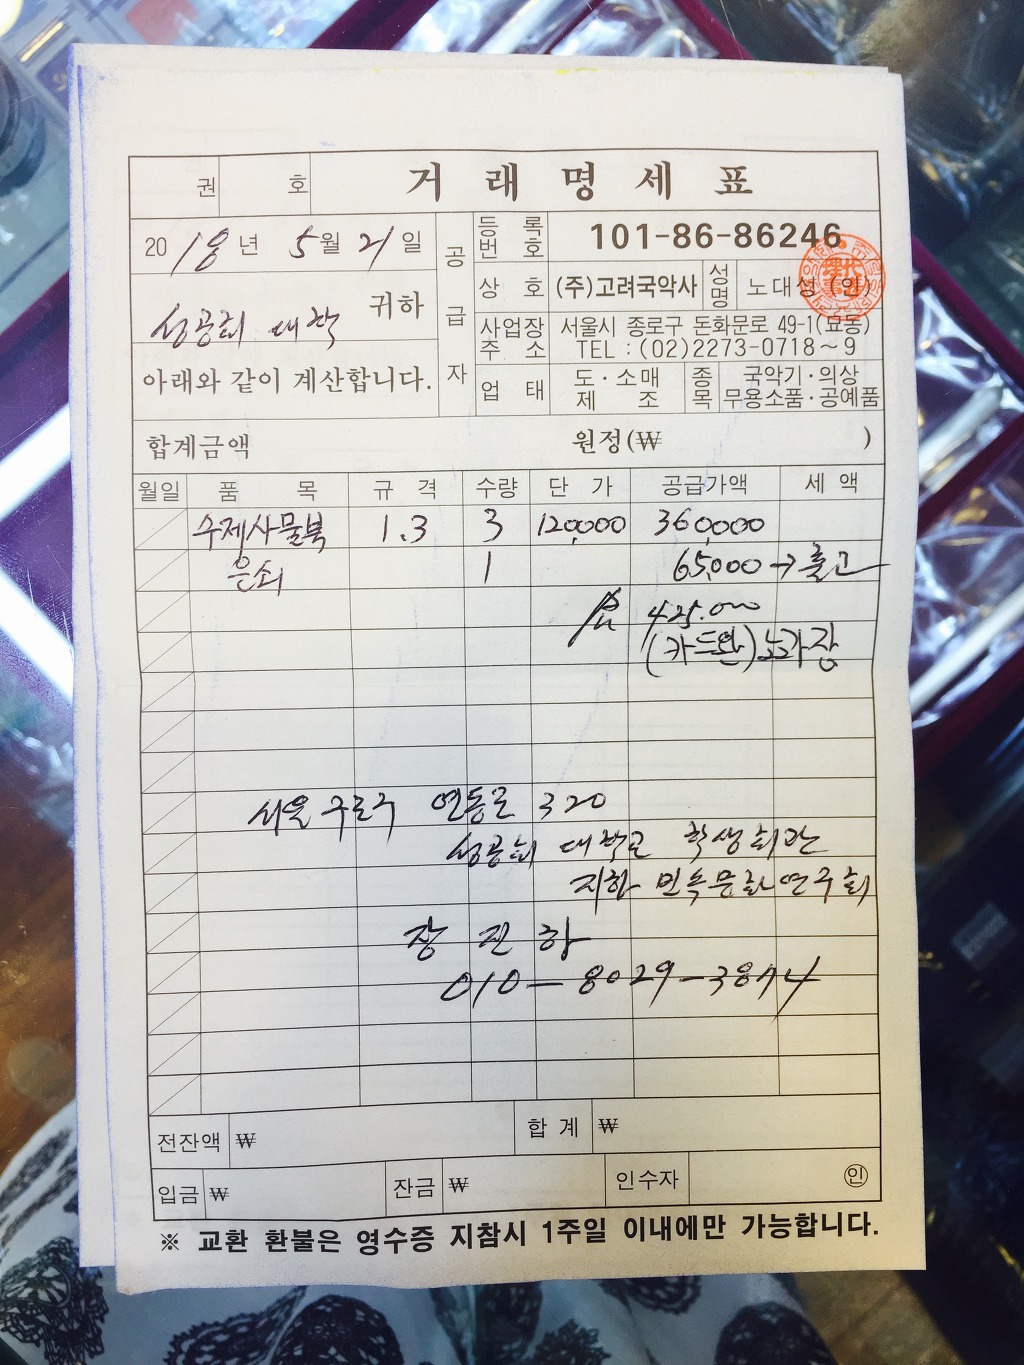 권 호 거 래 명 세 표
2018년 5월 21일
성공회 대학 귀하
아래와 같이 계산합니다.
공급자
등록번호 101-86-86246
상호 (주)고려국악사 성명 노대성 (인)
사업장주소 서울시 종로구 돈화문로 49-1(묘동)
TEL : (02)2273-0718~9
업태 도·소매 제조 종목 국악기·의상
무용소품·공예품
합계금액 원정(₩ )
월일 품 목 규 격 수량 단 가 공급가액 세 액
수제사물북 1.3 3 120,000 360,000
은쇠 1 65,000 → 출고
425,000
(카드완) 노가장
서울 구로구 연동로 320
성공회 대학교 학생회관
지하 민속문화연구회
장 진 하
전잔액 ₩ 합 계 ₩
입금 ₩ 잔금 ₩ 인수자 ㊞
※ 교환 환불은 영수증 지참시 1주일 이내에만 가능합니다.